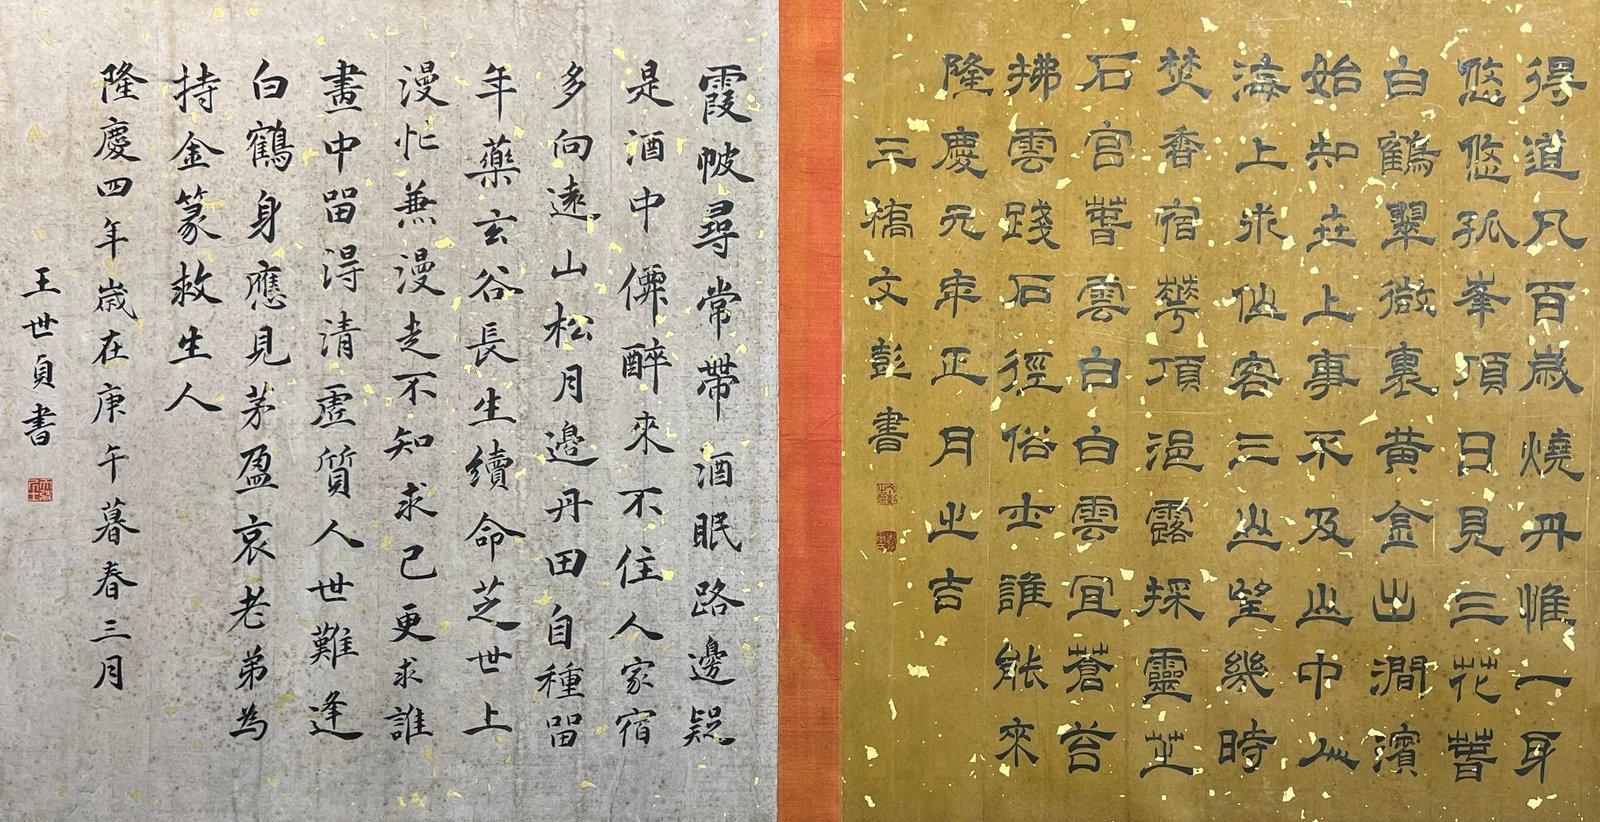 得道凡百歲燒丹惟一身
悠悠孤峯頂日見三花萅
白鶴翠微裏黄金出澗濱
始知世上事不及山中人
海上求仙客三山望幾時
焚香宿華頂浥露採靈芝
石宮萅雲白白雲宜蒼苔
拂雲踐石徑俗士誰能來
隆慶元年正月之吉
三橋文彭書
霞帔尋常帶酒眠路邊疑
是酒中僊醉來不住人家宿
多向遠山松月邊丹田自種留
年藥玄谷長生續命芝世上
漫忙兼漫走不知求己更求誰
畫中留得清虛質人世難逢
白鶴身應見茅盈哀老弟為
持金篆救生人
隆慶四年歲在庚午暮春三月
王世貞書